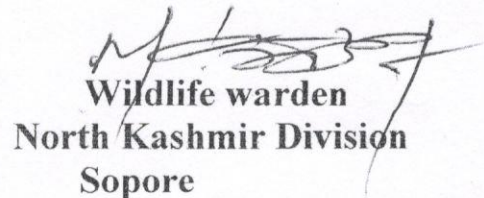 Wildlife warden
North Kashmir Division
Sopore